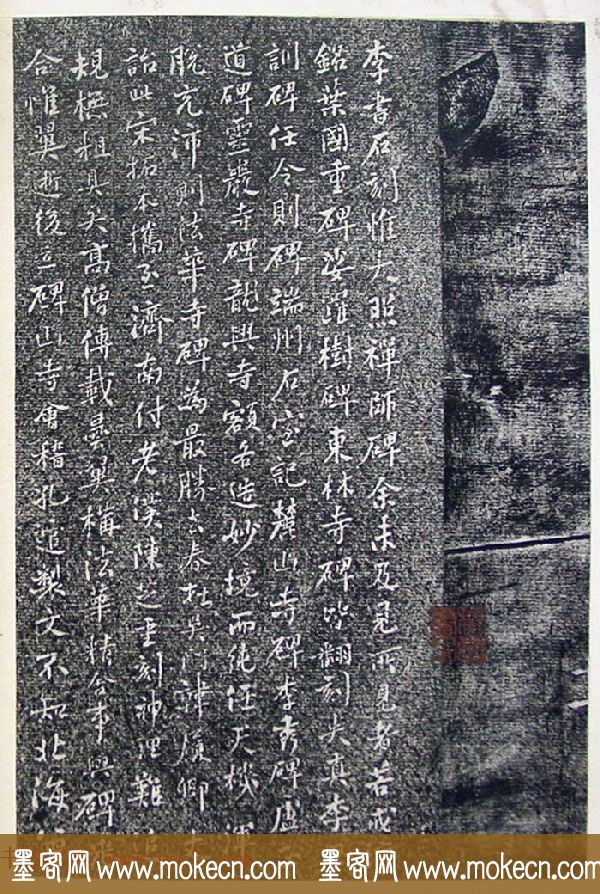 李書石刻惟大照禪師碑余未及見所見者若戒
銘葉國重碑娑羅樹碑東林寺碑皆翻刻失真李
訓碑任令則碑端州石室記麓山寺碑李秀碑盧
道碑靈巖寺碑龍興寺額各造妙境而純任天機渾
脫充沛則法華寺碑為最勝去春杜吳門韓履卿
詒此宋拓本攜至濟南付老僕陳芝重刻神理難
規橅粗具矣高僧傳載曇翼構法華精舍事與碑
合惟翼逝後立碑山寺會稽孔逭製文不知北海
墨客网 www.mokecn.com 墨客网 www.mokecn.com